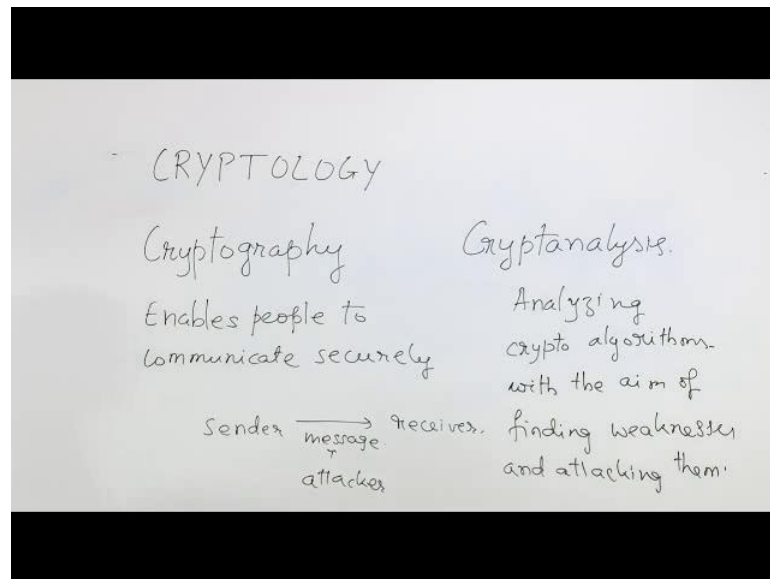 CRYPTOLOGY
Cryptography
Enables people to
communicate securely
sender → receiver.
message
attacker
Cryptanalysis.
Analyzing
crypto algorithms
with the aim of
finding weaknesses
and attacking them.